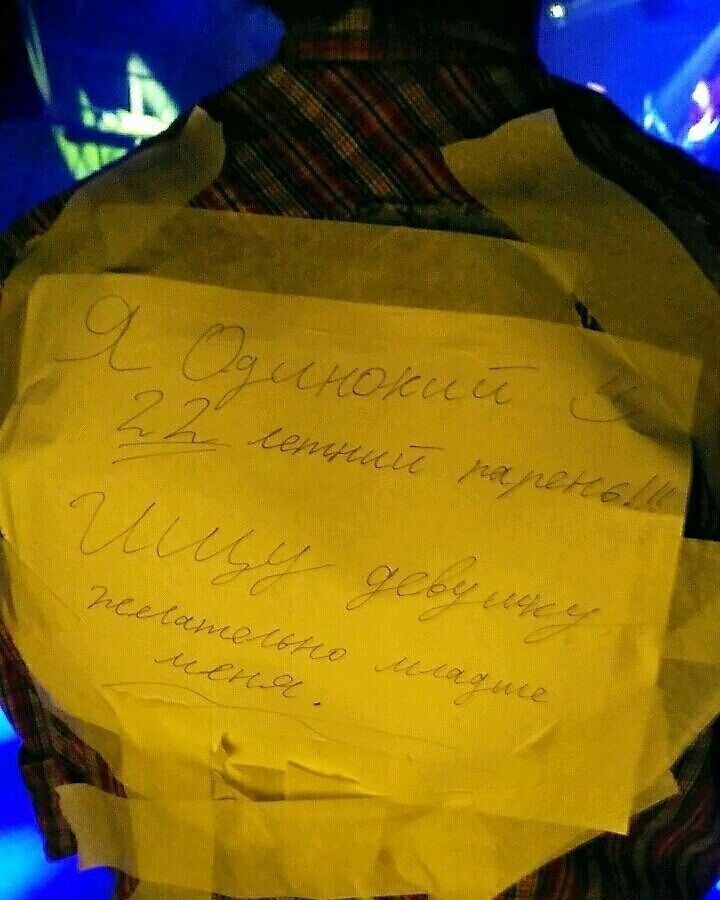 Я Одинокий
22 летний парень!!!
Ищу девушку
желательно младше
меня.